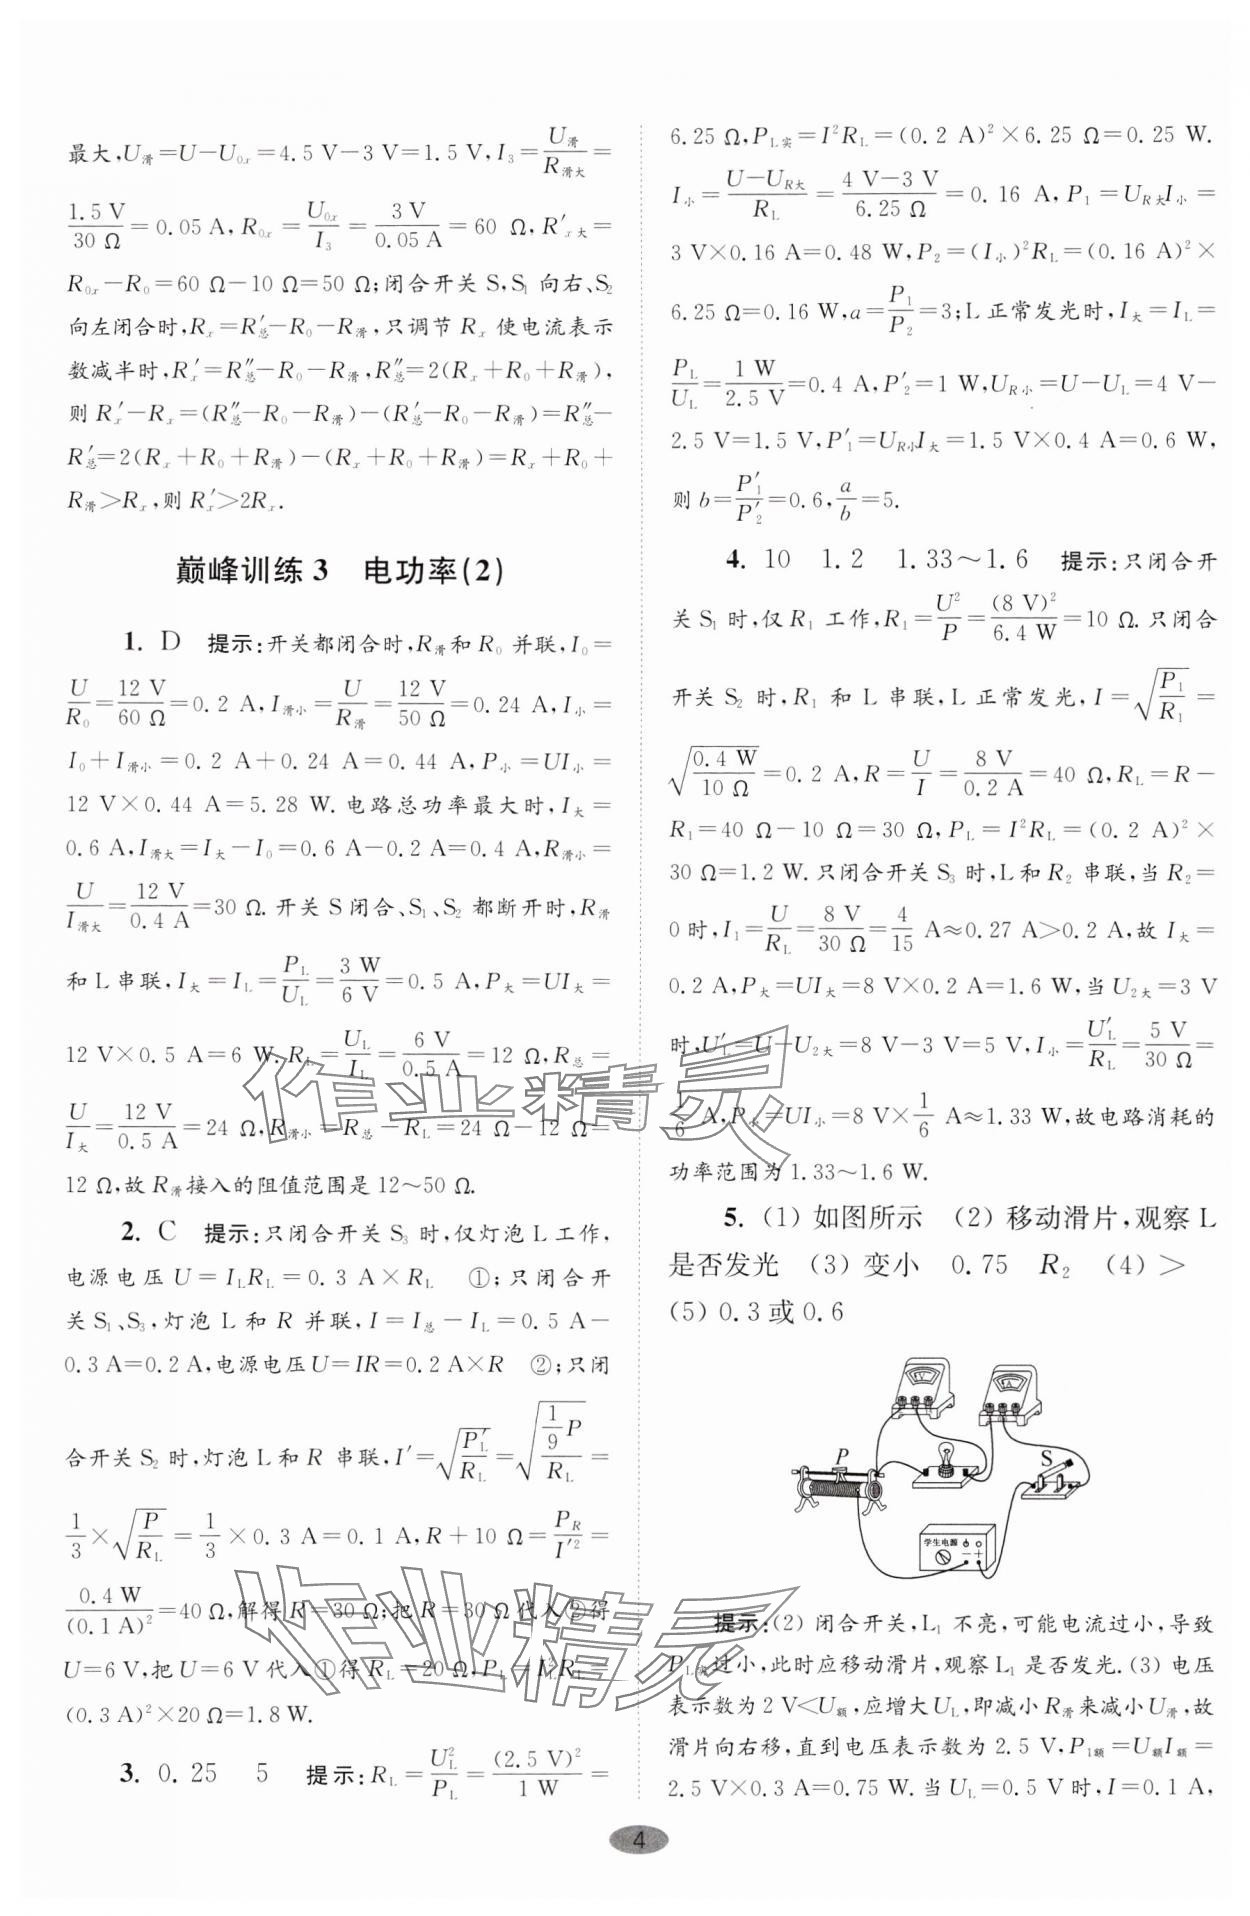 最大,U滑=U-U₀ₓ=4.5 V-3 V=1.5 V,I₃=U滑/R滑大=
1.5 V/30 Ω=0.05 A,R₀ₓ=U₀ₓ/I₃=3 V/0.05 A=60 Ω,R′ₓ大=
R₀ₓ-R₀=60 Ω-10 Ω=50 Ω;闭合开关 S,S₁ 向右、S₂
向左闭合时,Rₓ=R′总-R₀-R滑,只调节 Rₓ 使电流表示
数减半时,Rₓ′=R″总-R₀-R滑,R″总=2(Rₓ+R₀+R滑),
则 Rₓ′-Rₓ=(R″总-R₀-R滑)-(R′总-R₀-R滑)=R″总-
R′总=2(Rₓ+R₀+R滑)-(Rₓ+R₀+R滑)=Rₓ+R₀+
R滑>Rₓ,则 Rₓ′>2Rₓ.
巅峰训练 3 电功率(2)
1. D 提示:开关都闭合时,R滑和 R₀ 并联,I₀=
U/R₀=12 V/60 Ω=0.2 A,I滑小=U/R滑=12 V/50 Ω=0.24 A,I小=
I₀+I滑小=0.2 A+0.24 A=0.44 A,P小=UI小=
12 V×0.44 A=5.28 W.电路总功率最大时,I大=
0.6 A,I滑大=I大-I₀=0.6 A-0.2 A=0.4 A,R滑小=
U/I滑大=12 V/0.4 A=30 Ω.开关 S闭合、S₁、S₂ 都断开时,R滑
和 L 串联,I大=I_L=P_L/U_L=3 W/6 V=0.5 A,P大=UI大=
12 V×0.5 A=6 W,R_L=U_L/I_L=6 V/0.5 A=12 Ω,R总=
U/I大=12 V/0.5 A=24 Ω,R滑小=R总-R_L=24 Ω-12 Ω=
12 Ω,故 R滑接入的阻值范围是 12~50 Ω.
2. C 提示:只闭合开关 S₃ 时,仅灯泡 L 工作,
电源电压 U=I_LR_L=0.3 A×R_L ①;只闭合开
关 S₁、S₃,灯泡 L 和 R 并联,I=I总-I_L=0.5 A-
0.3 A=0.2 A,电源电压 U=IR=0.2 A×R ②;只闭
合开关 S₂ 时,灯泡 L 和 R 串联,I′=√(P′_L/R_L)=√((1/9)P/R_L)=
1/3×√(P/R_L)=1/3×0.3 A=0.1 A,R+10 Ω=P_R/I′²=
0.4 W/(0.1 A)²=40 Ω,解得 R=30 Ω;把 R=30 Ω 代入②得
U=6 V,把 U=6 V 代入①得 R_L=20 Ω,P_L=I_L²R_L=
(0.3 A)²×20 Ω=1.8 W.
3. 0.25 5 提示:R_L=U_L²/P_L=(2.5 V)²/1 W=
6.25 Ω,P_L实=I²R_L=(0.2 A)²×6.25 Ω=0.25 W.
I小=(U-U_R大)/R_L=(4 V-3 V)/6.25 Ω=0.16 A,P₁=U_R大I小=
3 V×0.16 A=0.48 W,P₂=(I小)²R_L=(0.16 A)²×
6.25 Ω=0.16 W,a=P₁/P₂=3;L 正常发光时,I大=I_L=
P_L/U_L=1 W/2.5 V=0.4 A,P′₂=1 W,U_R小=U-U_L=4 V-
2.5 V=1.5 V,P′₁=U_R小I大=1.5 V×0.4 A=0.6 W,
则 b=P′₁/P′₂=0.6,a/b=5.
4. 10 1.2 1.33~1.6 提示:只闭合开
关 S₁ 时,仅 R₁ 工作,R₁=U²/P=(8 V)²/6.4 W=10 Ω.只闭合
开关 S₂ 时,R₁ 和 L 串联,L 正常发光,I=√(P₁/R₁)=
√(0.4 W/10 Ω)=0.2 A,R=U/I=8 V/0.2 A=40 Ω,R_L=R-
R₁=40 Ω-10 Ω=30 Ω,P_L=I²R_L=(0.2 A)²×
30 Ω=1.2 W.只闭合开关 S₃ 时,L和 R₂ 串联,当 R₂=
0 时,I₁=U/R_L=8 V/30 Ω=4/15 A≈0.27 A>0.2 A,故 I大=
0.2 A,P大=UI大=8 V×0.2 A=1.6 W,当 U₂大=3 V
时,U′_L=U-U₂大=8 V-3 V=5 V,I小=U′_L/R_L=5 V/30 Ω=
1/6 A,P小=UI小=8 V×1/6 A≈1.33 W,故电路消耗的
功率范围为 1.33~1.6 W.
5. (1) 如图所示 (2) 移动滑片,观察 L
是否发光 (3) 变小 0.75 R₂ (4) >
(5) 0.3 或 0.6
V
A
P
S
学生电源
- +
提示:(2) 闭合开关,L₁ 不亮,可能电流过小,导致
P_L实过小,此时应移动滑片,观察 L₁ 是否发光.(3) 电压
表示数为 2 V<U额,应增大 U_L,即减小 R滑来减小 U滑,故
滑片向右移,直到电压表示数为 2.5 V,P₁额=U额I额=
2.5 V×0.3 A=0.75 W.当 U_L=0.5 V 时,I=0.1 A,
4
作业精灵
作业精灵